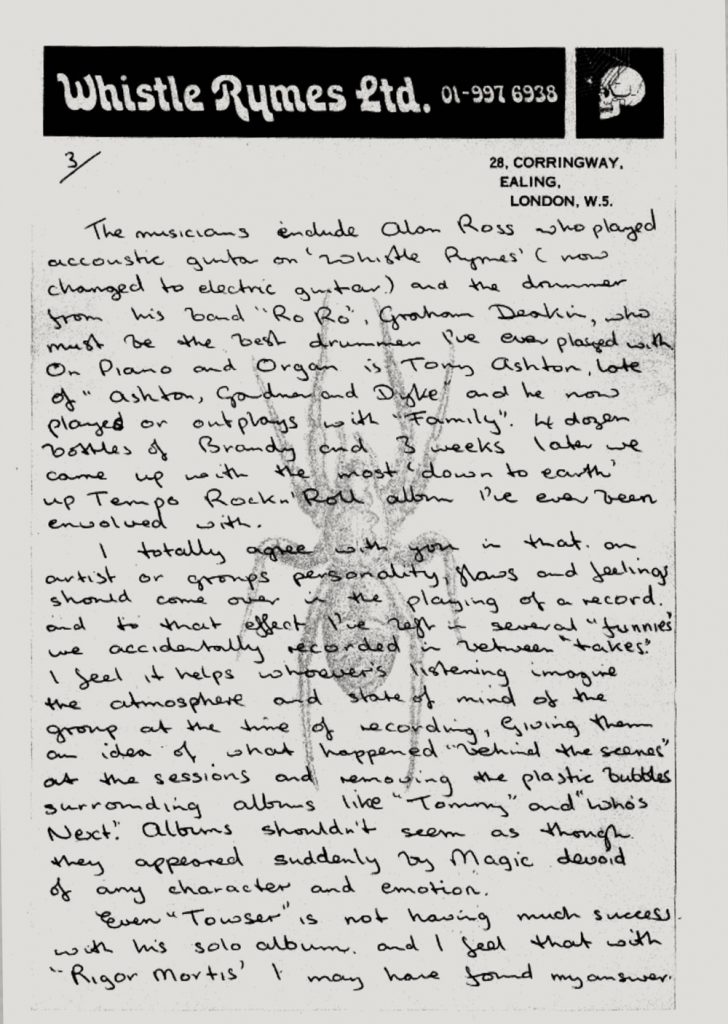 Whistle Rymes Ltd. 01-997 6938
3/
28, CORRINGWAY,
EALING,
LONDON, W.5.
The musicians include Alan Ross who played
accoustic guitar on 'Whistle Rymes' (now
changed to electric guitar) and the drummer
from his band "Ro Ro", Graham Deakin, who
must be the best drummer I've ever played with
On Piano and Organ is Tony Ashton, late
of "Ashton, Gardner and Dyke" and he now
played or outplays with "Family". 4 dozen
bottles of Brandy and 3 weeks later we
came up with the most 'down to earth'
up Tempo Rock n' Roll album I've ever been
envolved with.
I totally agree with you in that. an
artist or groups personality, flaws and feelings
should come over in the playing of a record.
and to that effect I've left in several "funnies"
we accidentally recorded in between "takes".
I feel it helps whoever's listening imagine
the atmosphere and state of mind of the
group at the time of recording, Giving them
an idea of what happened "behind the scenes"
at the sessions and removing the plastic bubbles
surronding albums like "Tommy" and "Who's
Next". Albums shouldn't seem as though
they appeared suddenly by Magic devoid
of any character and emotion.
Even "Towser" is not having much success
with his solo album. and I feel that with
"Rigor Mortis' I may have found my answer.